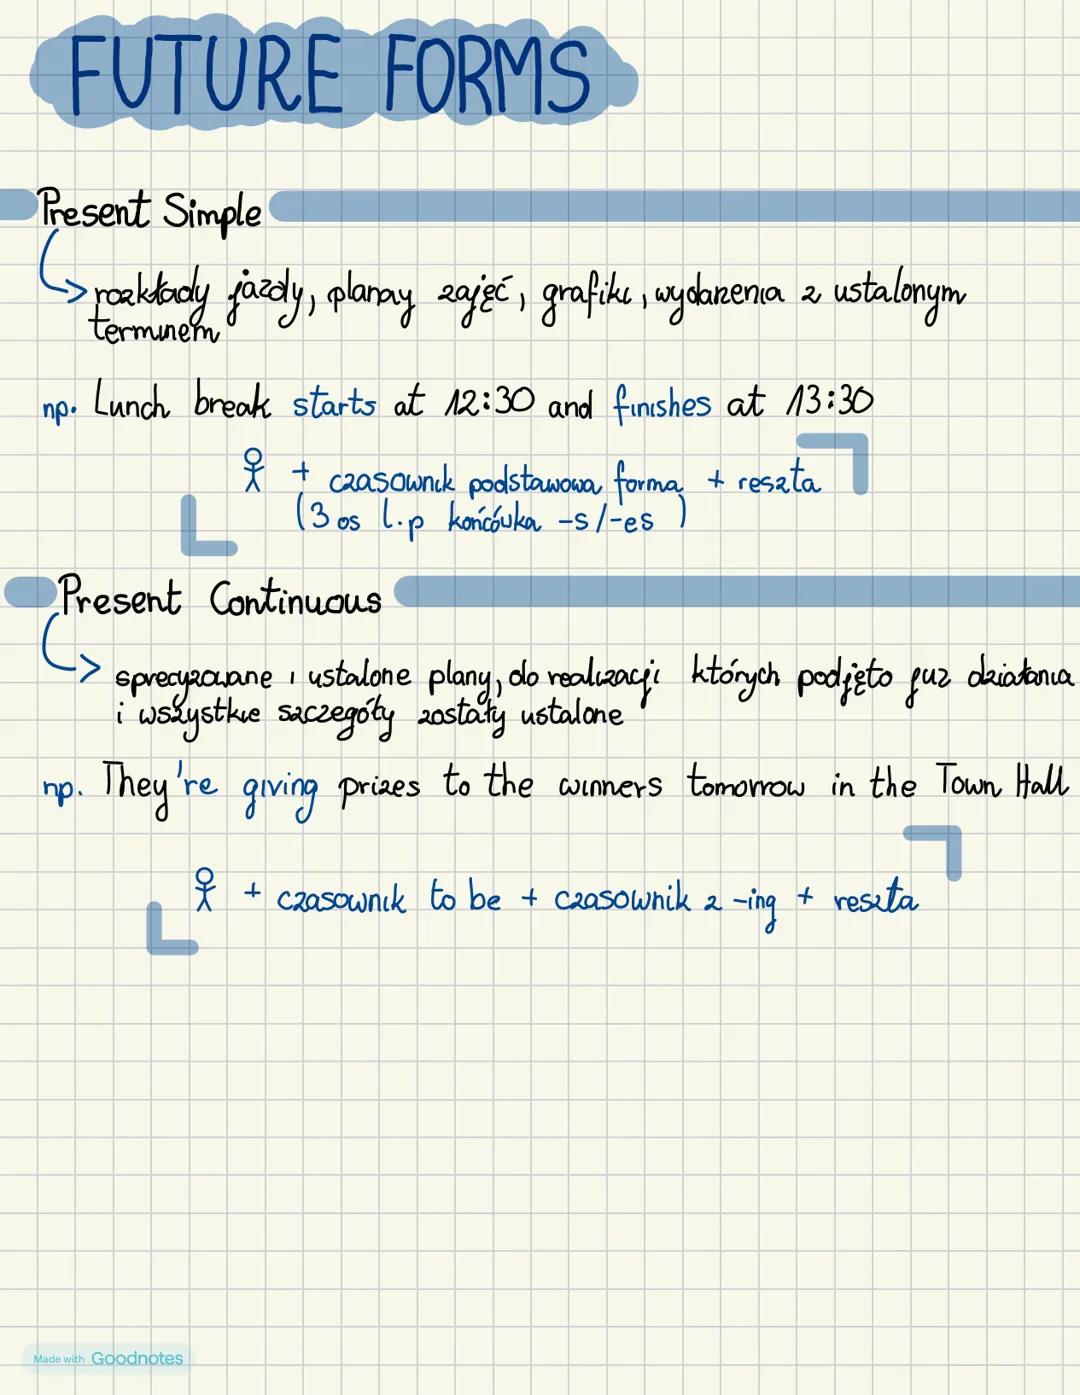 FUTURE FORMS
Present Simple
rozkłady jazdy, planay zajęć, grafiki, wydarzenia z ustalonym
terminem
np. Lunch break starts at 12:30 and finishes at 13:30
+ czasownik podstawowa forma + reszta
(3 os l.p końcówka -s/-es )
Present Continuous
sprecyzowane i ustalone plany, do realizacji których podjęto już działania
i wszystkie szczegóły zostały ustalone
np. They're giving prizes to the winners tomorrow in the Town Hall
+ czasownik to be + czasownik z -ing + reszta
Made with Goodnotes